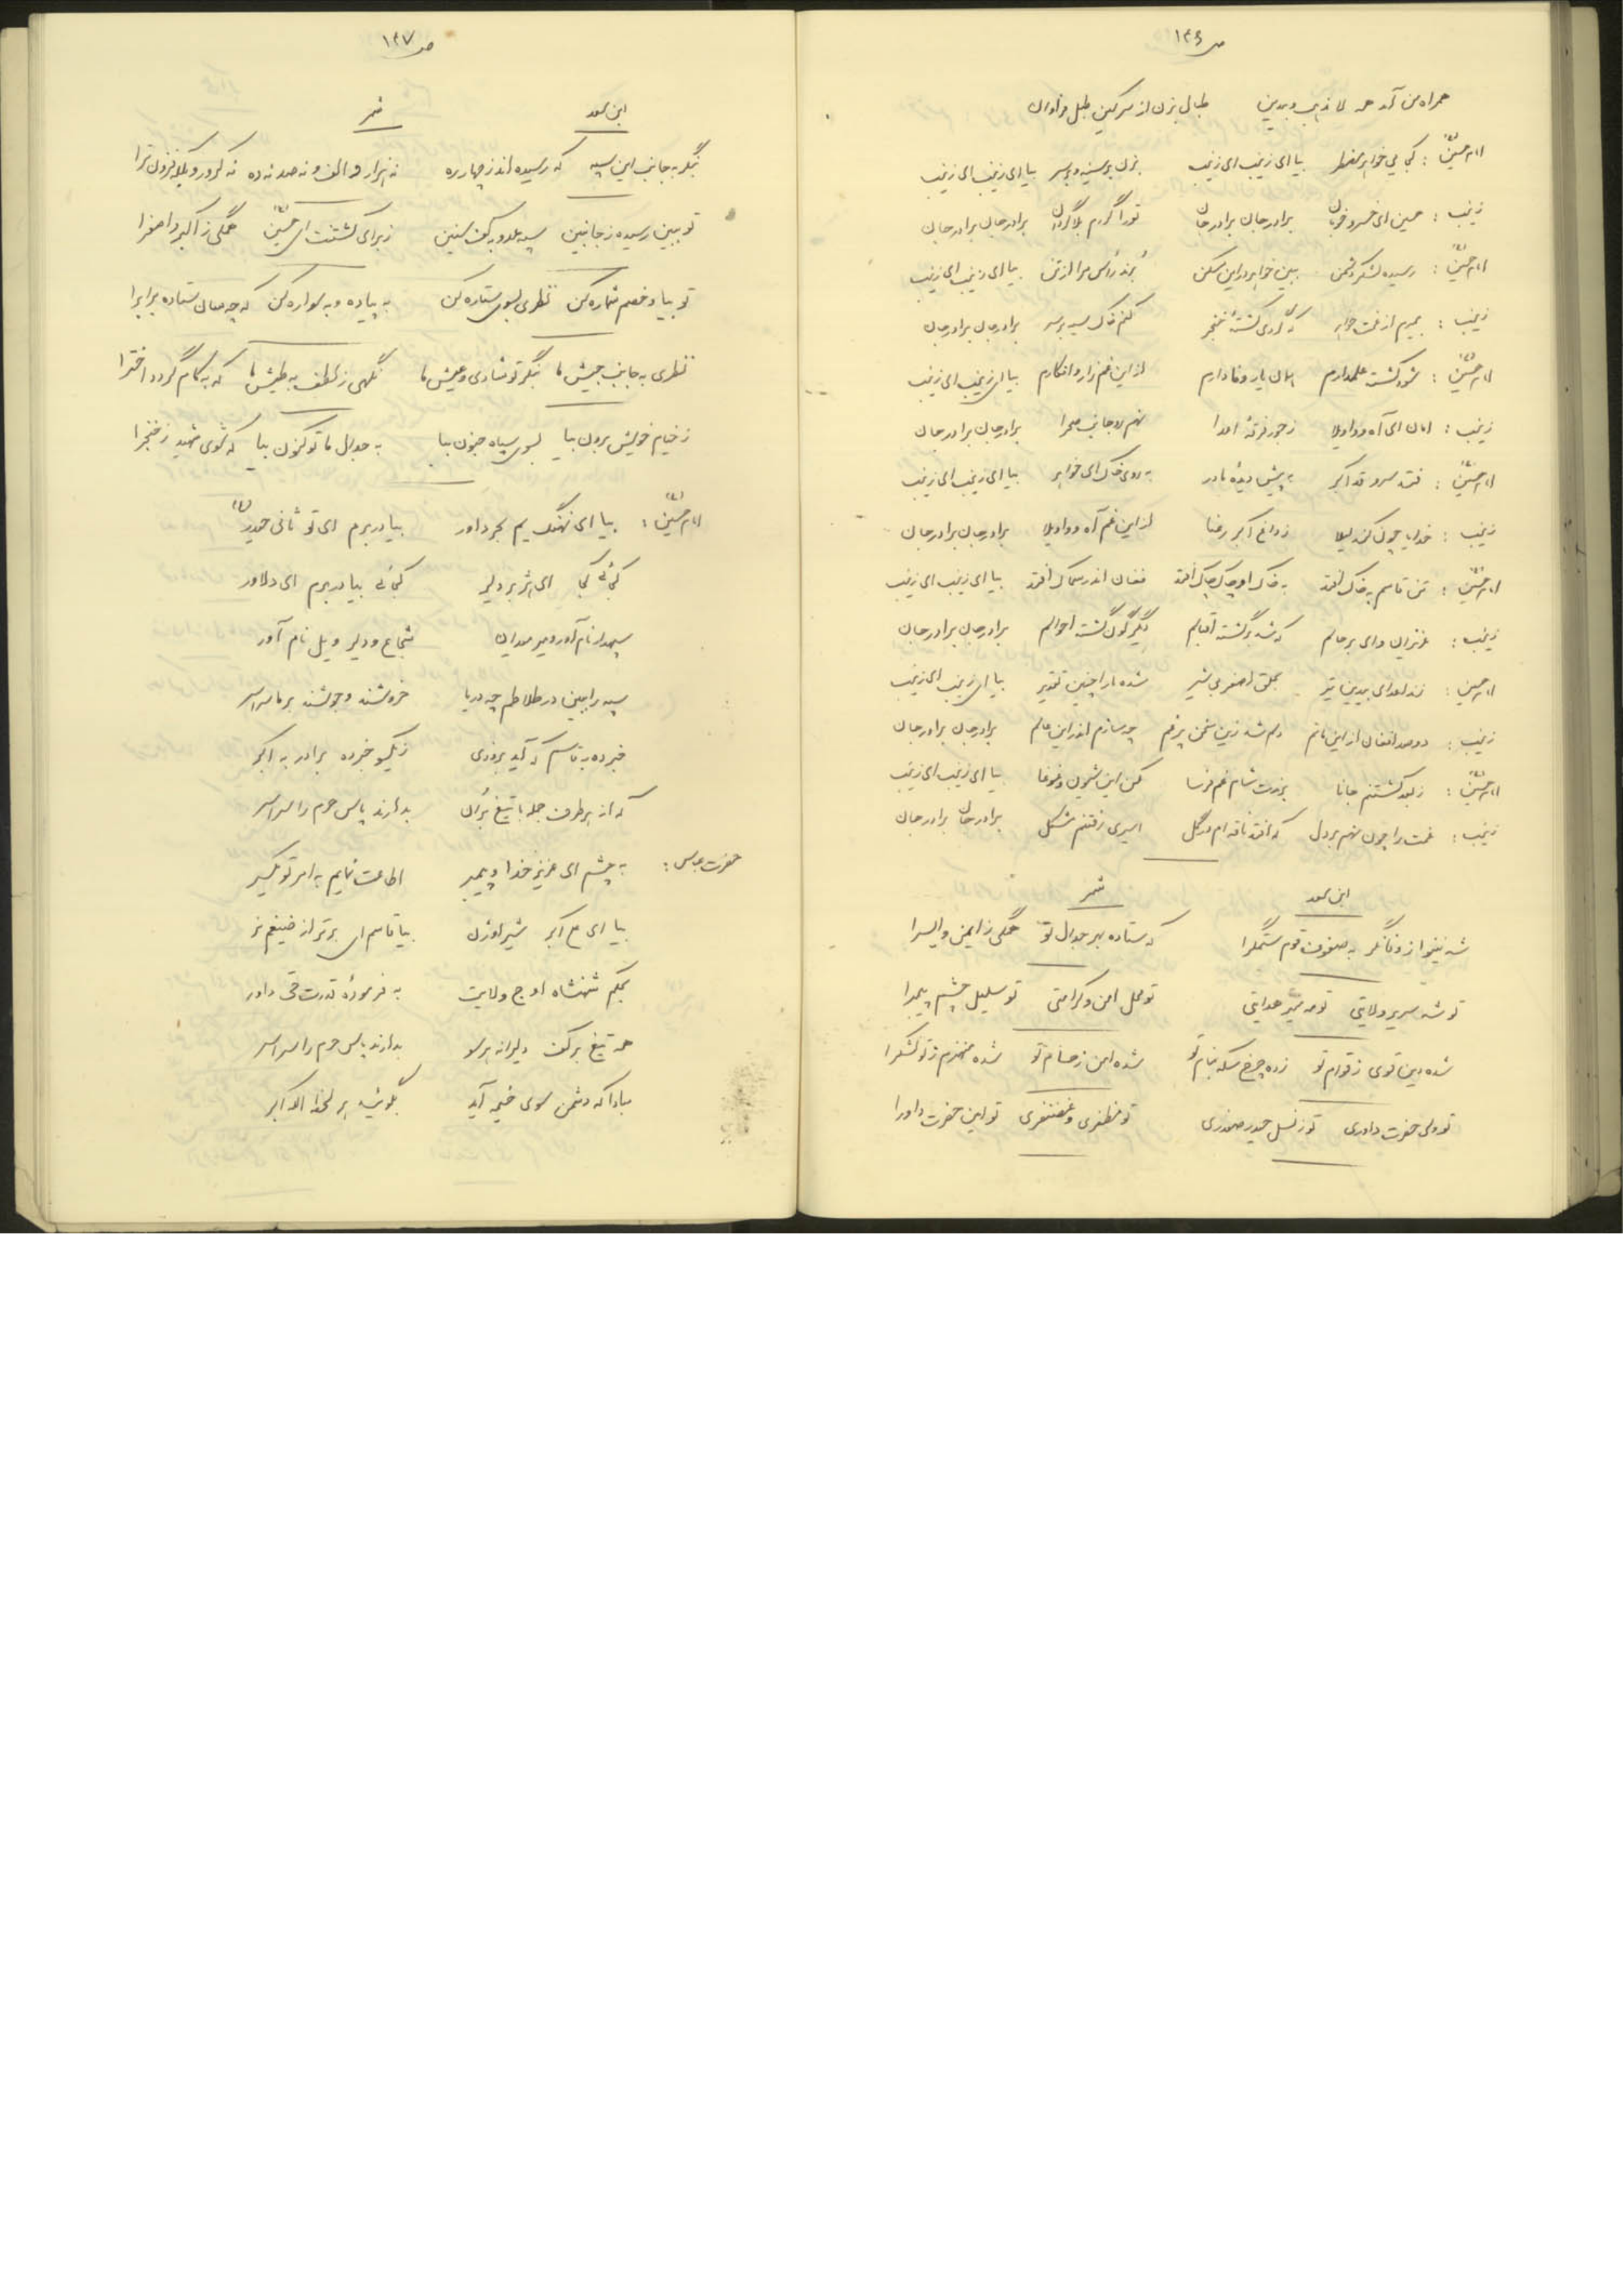 ص ۱۳۶
همراه من آمد همه لا مذهب و بیدین طبال بزن از سر کین طبل فراوان
امام حسین ع : کجایی خواهر مضطر بیا ای زینب ای زینب بزن بر سینه و بر سر بیا ای زینب ای زینب
زینب : حسین ای خسرو خوبان برادر جان برادر جان تو را گردم بلا گردان برادر جان برادر جان
امام حسین ع : رسیده لشکر دشمن ببین خواهر در این مسکن بُرند رأس مرا از تن بیا ای زینب ای زینب
زینب : بمیرم از غمت خواهر که گردی کشتهٔ خنجر کنم خاک سیه بر سر برادر جان برادر جان
امام حسین ع : شود کشته علمدارم همان یار وفادارم از این غم زار و افکارم بیا ای زینب ای زینب
زینب : امان ای آه و واویلا ز جور فرقهٔ اعدا نهم رو جانب صحرا برادر جان برادر جان
امام حسین ع : فتد سرو قد اکبر به پیش دیدهٔ مادر به روی خاک ای خواهر بیا ای زینب ای زینب
زینب : خدایا چون کند لیلا ز داغ اکبر رعنا از این غم آه و واویلا برادر جان برادر جان
امام حسین ع : تن قاسم به خاک افتد به خاک او چاک چاک افتد فغان اندر سماک افتد بیا ای زینب ای زینب
زینب : عزیزان وای بر حالم که شد برگشته اقبالم دگرگون گشته احوالم برادر جان برادر جان
امام حسین : زند اعدای بیدین تیر بحلق اصغر بی شیر شده ما را چنین تقدیر بیا ای زینب ای زینب
زینب : دو صد افغان از این ماتم دلم شد زین سخن پر غم چه سازم اندر این عالم برادر جان برادر جان
امام حسین ع : ز بعد کشتنم جانا برندت شام غم فرسا مکن این شیون و غوغا بیا ای زینب ای زینب
زینب : غمت را چون نهم بر دل که افتد ناقه ام در گل اسیری رفتنم مشکل برادر جان برادر جان
ابن سعد شمر
شه نینوا ز وفا نگر به صفوف قوم ستمگرا که ستاده بهر جدال تو همگی ز ایمن و ایسرا
تو شه سریر ولایتی تو مه سپهر هدایتی تو محل امن و کرامتی تو سلیل چشم پیمبرا
شده دین قوی ز قوام تو زده چرخ سکه بنام تو شده امن ز حسام تو شده منهزم ز تو لشکرا
تو ولی حضرت داوری تو ز نسل حیدر صفدری تو مظفری و غضنفری تو امین حضرت داورا
ص ۱۳۷
ابن سعد شمر
بنگر به جانب این سپه که رسیده اند ز چهار ره نه هزار و الف و نه صد نه ده نه کرور و بلکه فزون ترا
تو ببین رسیده ز جانبین سپه عدو به کف سنین ز برای کشتنت ای حسین ع همگی ز اکبر و اصغرا
تو بیا و خصم شماره کن نظری بسوی ستاره کن به پیاده و به سواره کن که چه سان ستاده برابرا
نظری به جانب جیش ما بنگر تو شادی و عیش ما نگهی ز لطف به طیش ما که به کام گردد اخترا
ز خیام خویش برون بیا بسوی سپاه جنون بیا به جدال ما تو کنون بیا که شوی شهید ز خنجرا
امام حسین ع : بیا ای نهنگ یم بحر داور بیا در برم ای تو ثانی حیدر ع
کجائی کجا ای هژبر دلیر کجائی بیا در برم ای دلاور
سپهدار نام آور و میر میدان شجاع و دلیر و یل نام آور
سپه را ببین در طلاطم چه دریا خروشند و جوشند بر ما سراسر
خبر ده به قاسم که آید بزودی ز یکسو خبر ده برادر به اکبر
که از هر طرف جمله با تیغ بُران بدارند پاس حرم را سراسر
حضرت عباس : به چشم ای عزیز خدا و پیمبر اطاعت نمایم به امر تو یکسر
بیا ای علی اکبر شیر اوژن بیا قاسم ای برتر از ضیغم نر
بحکم شهنشاه اوج ولایت به فرمودهٔ قدرت حی داور
همه تیغ بر کف دلیرانه هر سو بدارند پاس حرم را سراسر
مبادا که دشمن سوی خیمه آید بگوئید هر لحظه الله اکبر